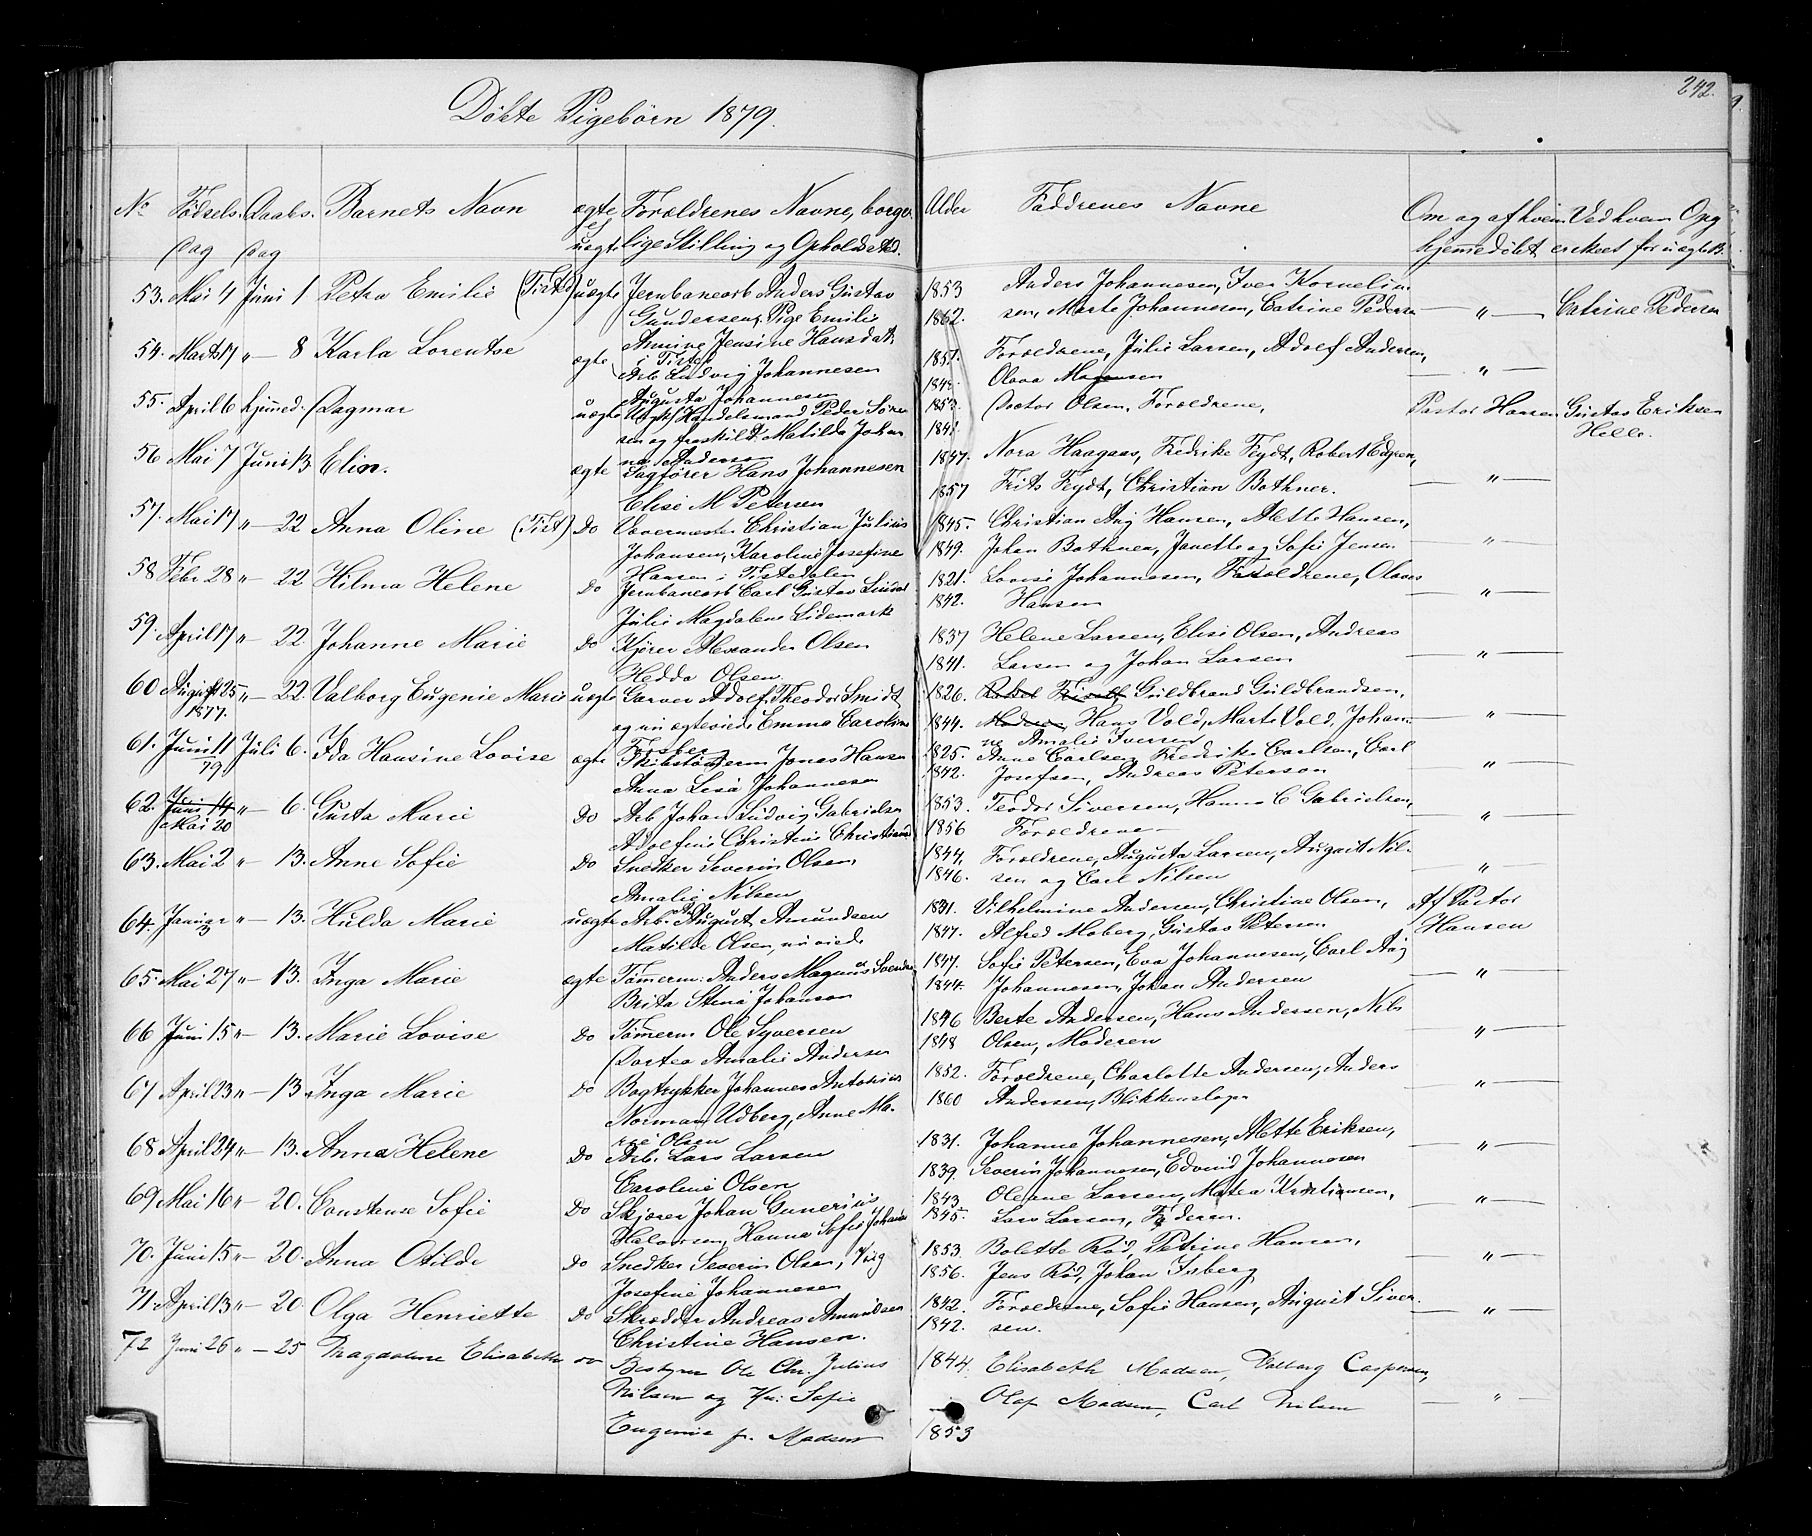 242.
Döbte Pigebörn 1879.
No Födsels Dag Daabs Dag Barnets Navn ægte ej uægt. Forældrenes Navne, borgerlige Stilling og Opholdsted. Alder Faddrenes Navne Om og af hvem hjemmedöbt Ved hvem Opg erkeet for uægteB.
53. Mai 4 Juni 1 Petra Emilie (Tisted) uægte Jernbanearb Anders Gustav 1853 Anders Johannesen, Iver Korneliu
Gundersen, Pige Emilie 1862. sen, Marte Johannesen, Catrine Pedersen — " — Catrine Pedersen
Annine Jensine Hansdat
i Tisted
54. Marts 17 " — 8 Karla Lorentse ægte Arb Ludvig Johannesen 1851. Forældrene, Julie Larsen, Adolf Andersen,
Augusta Johannesen 1848. Olava Magnusen — " —
55. April 6 hjemmed. Dagmar uægte Ungk. Handelsmand Peder Sören 1853. Doctor Olsen, Forældrene, Pastor Hansen Gustav Eriksen
sen og fraskild Matilda Johan 1848. Helle.
na Anderson
56 Mai 7 Juni 13 Elin. ægte Sagförer Hans Johannesen 1847. Nora Haagaas, Fredrike Feydt, Robert Edgren,
Elise M Petersen 1857 Frits Feydt, Christian Bothner. — " —
57. Mai 17 " — 22 Anna Oline (Tist) Do Vævermester Christian Julius 1845. Christian Aug Hansen, Alette Hansen,
Johansen, Karoline Josefine 1849. Johan Bothner, Janette og Sofie Jensen — " —
Hansen i Tistedalen
58 Febr 28 " — 22 Hilma Helene Do Jernbanearb Carl Gustav Lindal 1821. Lovise Johannessen, Forældrene, Olaves
Julie Magdalene Lidemark 1842. Hansen — " —
59. April 17 " — 22. Johanne Marie Do Kjörer Alexander Olsen 1837 Helene Larsen, Elise Olsen, Andreas
Hedda Olsen. 1841. Larsen og Johan Larsen — " —
60 August 25 " — 22. Valborg Eugenie Marie uægte Garver Adolf Theodor Smidt 1826. Guldbrand Guldbrandsen,
1877. og nu ægteviede Emma Caroline 1844. Hans Vold, Marte Vold, Johan — " —
Forsberg ne Amalie Iversen
61. Juni 11 Juli 6. Ida Hansine Lovise ægte Skibstömerm Jonas Hansen 1825. Anne Carlsen, Fredrik Carlsen, Carl
79 Anna Lisa Johannesen 1842. Josefsen, Andreas Peterson — " —
62. Juni 14 " — 6. Gusta Marie Do Arb Johan Ludvig Gabrielsen 1853. Teodor Siversen, Hanna C Gabrielsen,
Mai 20 Adolfine Christine Christians 1856 Forældrene — " —
63. Mai 2 " — 13. Anne Sofie Do Snedker Severin Olsen, 1844. Forældrene, Augusta Larsen, August Nil-
Amalie Nilsen 1846. sen og Carl Nilsen — " —
64. Januar 3 — 13. Hulda Marie uægte Arb. August Amundsen 1831. Vilhelmine Andersen, Christine Olsen, Af Pastor
Matilde Olsen, nu viede 1847. Alfred Moberg, Gustav Petersen Hansen
65. Mai 27 " — 13. Inga Marie ægte Tömerm. Anders Magnus Svendsen 1847. Sofie Petersen, Eva Johannesen, Carl Aug
Brita Stina Johanson 1844. Johannesen, Johan Andersen — " —
66 Juni 15 " — 13. Marie Lovise Do Tömerm Ole Syversen 1846 Berte Andersen, Hans Andersen, Nils
Dortea Amalie Andersen 1848 Olsen, Moderen — " —
67 April 23 " — 13 Inga Marie Do Bogtrykker Johannes Antonius 1852. Forældrene, Charlotte Andersen, Anders
Norman Udberg, Anne Ma- 1860 Andersen, Blikkenslager — " —
rie Olsen
68 April 24 " — 13. Anna Helene Do Arb. Lars Larsen 1831. Johanne Johannesen, Alette Eriksen,
Caroline Olsen 1839. Severin Johannesen, Edvind Johannesen — " —
69 Mai 16 " — 20. Constanse Sofie Do Skjörer Johan Gunerius 1843. Oleane Larsen, Matea Kristiansen,
Halvorsen, Hanna Sofie Johans 1845. Lars Larsen, Faderen. — " —
70. Juni 15 " — 20. Anna Otilde Do Snedker Severin Olsen, Viig 1853. Bolette Röd, Petrine Hansen,
Josefine Johannesen 1856. Jens Röd, Johan Isberg — " —
71. April 13 " — 20 Olga Henriette Do Skrædder Andreas Amundsen 1842. Forældrene, Sofie Hansen, August Siver-
Christine Hansen. 1842. sen. — " —
72 Juni 26 " — 25 Magdalene Elisabeth Do Bestyrer Ole Chr. Julius 1844. Elisabeth Madsen, Valborg Caspersen,
Nilsen og Hu: Sofie Olaf Madsen, Carl Nilsen — " —
Eugenie f. Madsen 1853